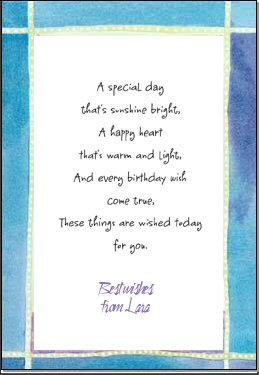 A special day
that's sunshine bright,
A happy heart
that's warm and light,
And every birthday wish
come true,
These things are wished today
for you.
Best wishes
from Lara